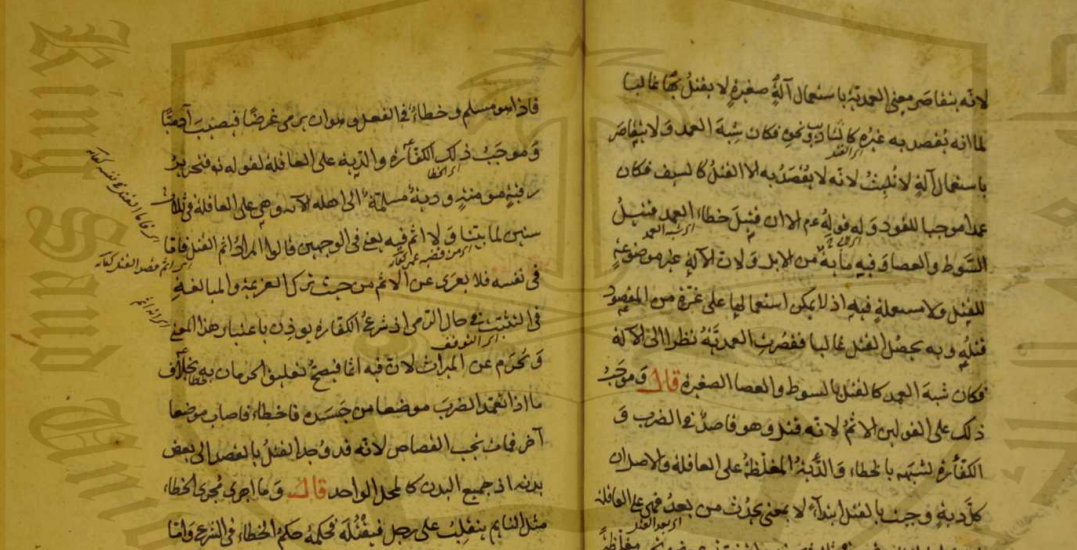 لانه يتقاصر معنى العمدية باستعمال آلة صغيرة لا يقتل بها غالبا
لما انه يقصد به غيره كالتاديب ونحوه فكان شبه العمد ولا يتقاصر
باستعمال آلة لا تلبث لانه لا يقصد به الا القتل كالسيف فكان
عمدا موجبا للقود وله قوله عم الا ان قتيل خطاء العمد قتيل
السوط والعصا وفيه مأية من الابل ولان الآلة غير موضوعة
للقتل ولا مستعملة فيه اذ لا يمكن استعمالها على غرة من المقصود
قتله وبه يحصل القتل غالبا فقصرت العمدية نظرا الى الآلة
فكان شبه العمد كالقتل بالسوط والعصا الصغيرة قال وموجب
ذلك على القولين الاثم لانه قتل وهو قاصد في الضرب و
الكفارة لشبهه بالخطاء والدية المغلظة على العاقلة والاصل ان
كل دية وجبت بالقتل ابتداء لا بمعنى يحدث من بعد فهي على العاقلة
فاذا هو مسلم وخطاء في الفعل وهو ان يرمي غرضا فيصيب آدميا
وموجب ذلك الكفارة والدية على العاقلة لقوله تع فتحرير
رقبة مومنة ودية مسلمة الى اهله الآية وهي على العاقلة في ثلاث
سنين لما بينا ولا اثم فيه يعني في الوجهين قالوا المراد اثم القتل فاما
في نفسه فلا يعرى عن الاثم من حيث ترك العزيمة والمبالغة
في التثبت في حال الرمي اذ شرع الكفارة يوذن باعتبار هذا المعنى
ويحرم عن الميراث لان فيه اثما فيصح تعليق الحرمان به بخلاف
ما اذا تعمد الضرب موضعا من جسده فاخطاء فاصاب موضعا
آخر فمات يجب القصاص لانه قد وجد القتل بالقصد الى بعض
بدنه اذ جميع البدن كالمحل الواحد قال وما اجرى مجرى الخطاء
مثل النايم ينقلب على رجل فيقتله فحكمه حكم الخطاء في الشرع واما
King Saud